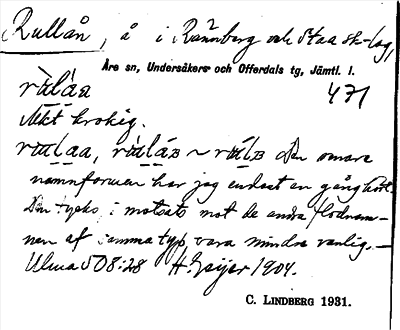 Rullån, å i Rännberg och Staa sk-lag,
Åre sn, Undersåkers och Offerdals tg, Jämtl. l.
471
Mkt krokig.
Den senare
namnformen har jag endast en gång hört.
Den tycks, i motsats mot de andra flodnam-
nen af samma typ, vara mindre vanlig. —
Ulma 508:28 H. Geijer 1904.
C. LINDBERG 1931.